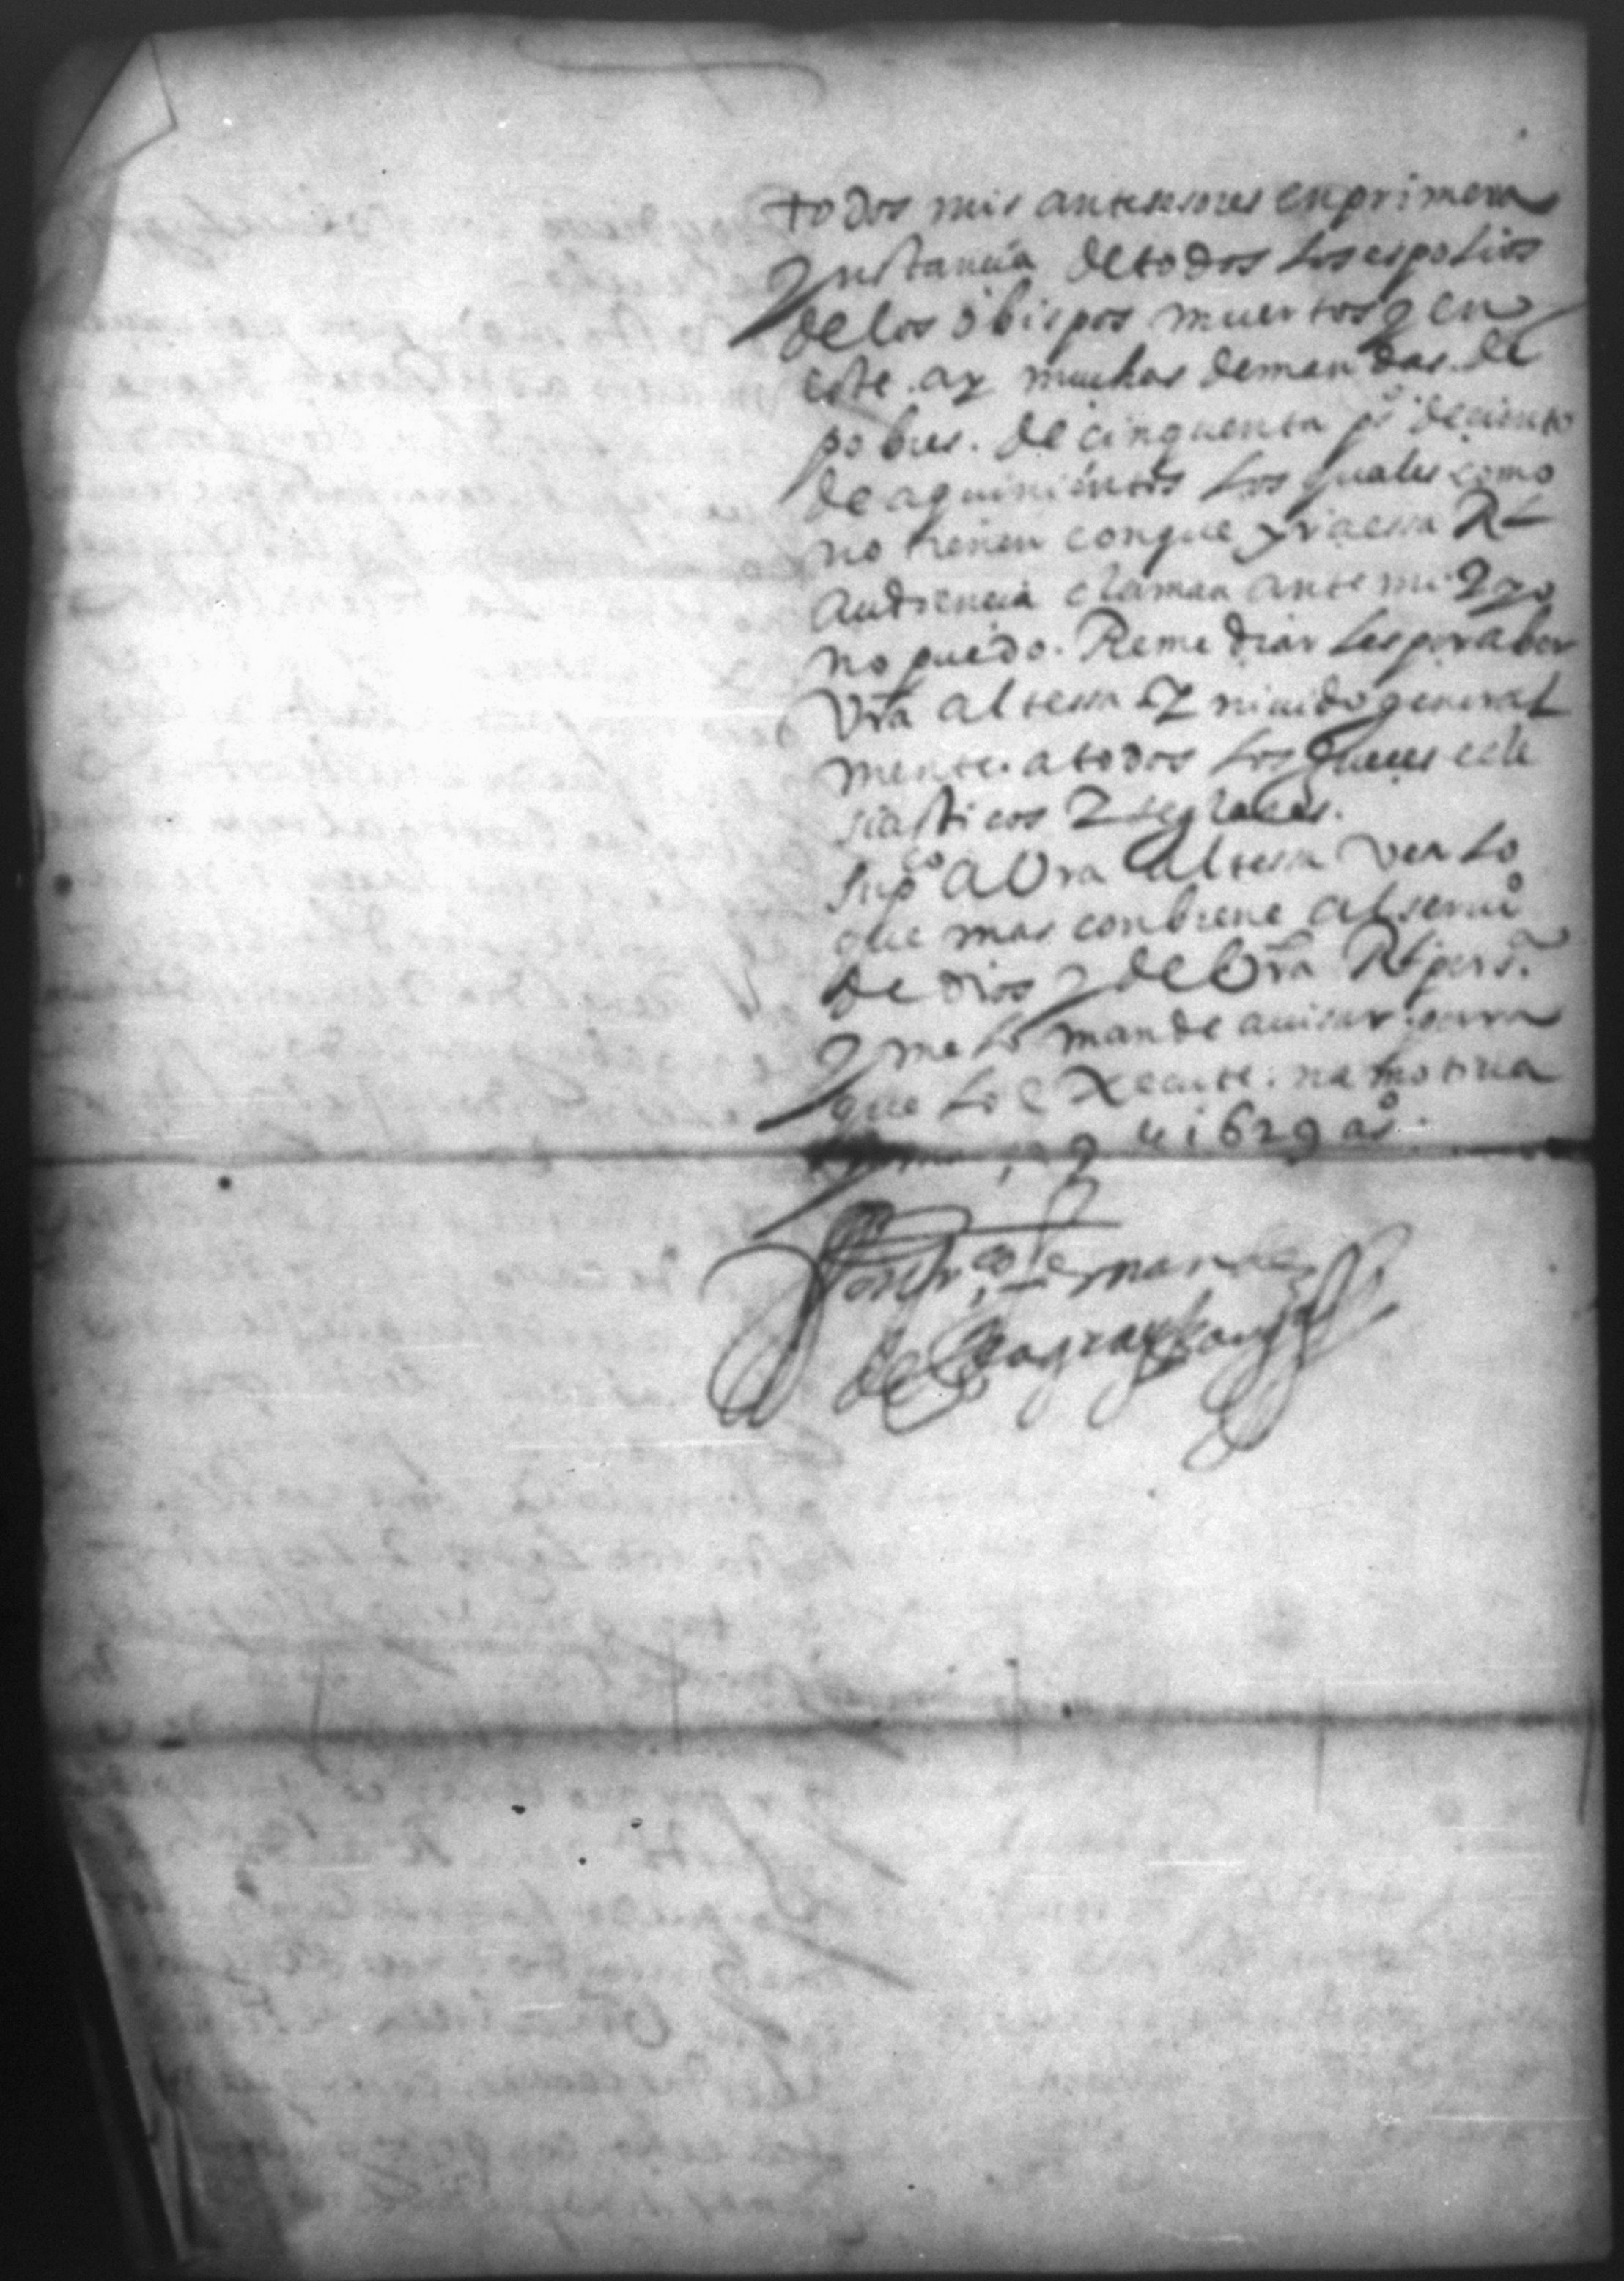 todos mis antesesores en primera
Ynstancia de todos los espolios
de los obispos muertos y en
este ay muchas demandas de
pobres. de cinquenta ps de ciento
de a quinientos los quales como
no tienen con que yr a essa Rl
Audiencia claman ante mi Y yo
no puedo Remediarles por aber
Vra altessa Ynividogeneral
mente a todos los Jueces ecle
siasticos Y seglares.
supco a Vra Altessa vea lo
que mas conbiene al servio
de dios y de Vra Rl persa
Y me lo mande avisar para
que lo execute.
1629 as.
franco fernandez
de